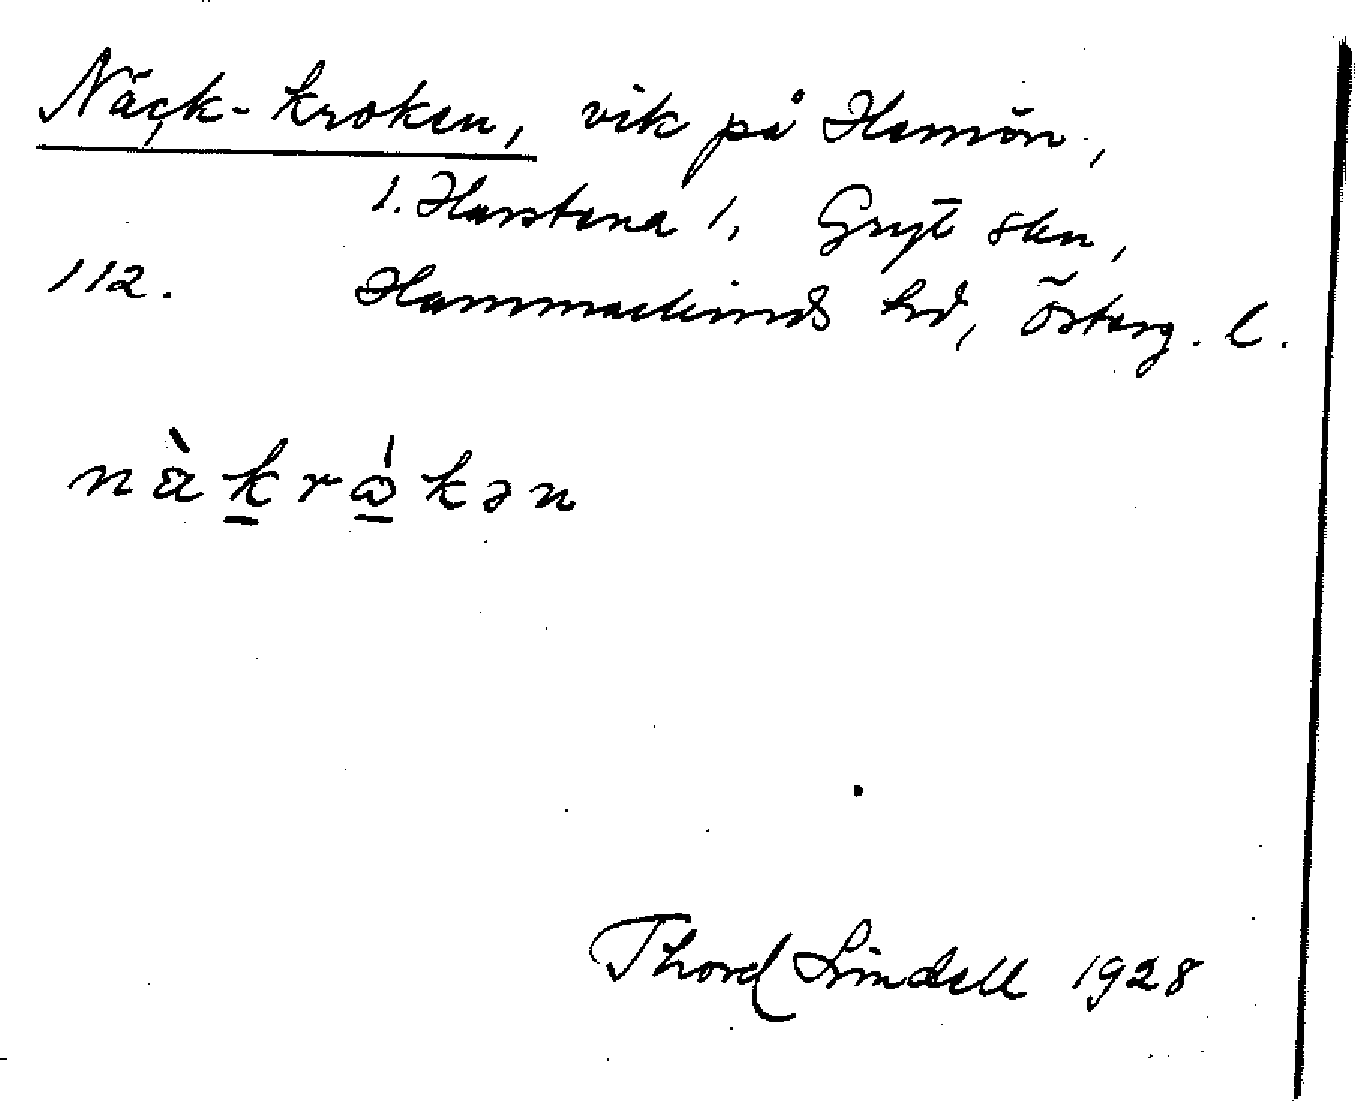 Näck-kroken, vik på Hamön,
1. Harstena 1, Gryt skn,
112. Hammarkinds hd, Österg. l.
nä̀krå̍kən
Thord Lindell 1928